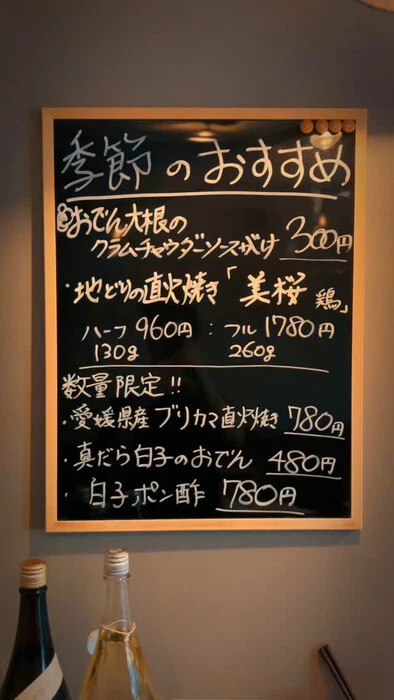 季節のおすすめ
おでん大根の
クラムチャウダーソースがけ 300円
・地どりの直火焼き「美桜鶏」
ハーフ 960円 : フル 1780円
130g 260g
数量限定!!
・愛媛県産 ブリカマ直火焼き 780円
・真だら白子のおでん 480円
・白子ポン酢 780円